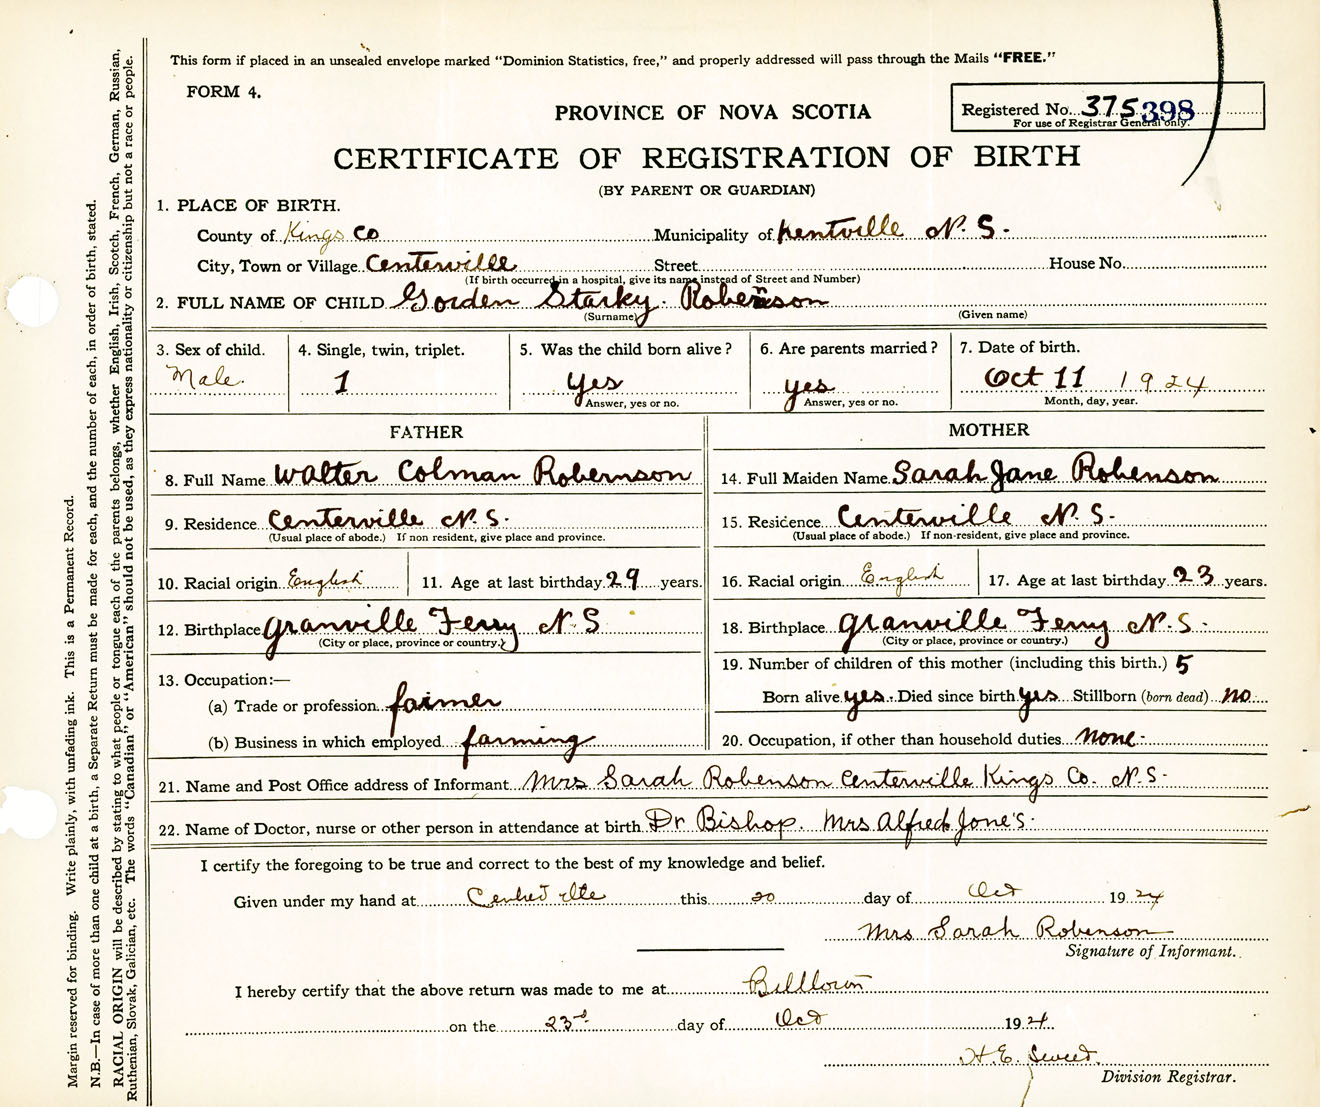 This form if placed in an unsealed envelope marked "Dominion Statistics, free," and properly addressed will pass through the Mails "FREE."
FORM 4.
PROVINCE OF NOVA SCOTIA
Registered No. 375 398
For use of Registrar General only.
CERTIFICATE OF REGISTRATION OF BIRTH
(BY PARENT OR GUARDIAN)
1. PLACE OF BIRTH.
County of Kings Co Municipality of Kentville N. S.
City, Town or Village Centerville Street House No.
(If birth occurred in a hospital, give its name instead of Street and Number)
2. FULL NAME OF CHILD Gorden Starky Robenson
(Surname) (Given name)
3. Sex of child. 4. Single, twin, triplet. 5. Was the child born alive? 6. Are parents married? 7. Date of birth.
Male. 1 yes yes Oct 11 1924
Answer, yes or no. Answer, yes or no. Month, day, year.
FATHER MOTHER
8. Full Name Walter Colman Robernson 14. Full Maiden Name Sarah Jane Robenson
9. Residence Centerville N. S. 15. Residence Centerville N. S.
(Usual place of abode.) If non resident, give place and province. (Usual place of abode.) If non-resident, give place and province.
10. Racial origin English 11. Age at last birthday 29 years. 16. Racial origin English 17. Age at last birthday 23 years.
12. Birthplace Granville Ferry N. S 18. Birthplace Granville Ferry N. S.
(City or place, province or country.) (City or place, province or country.)
19. Number of children of this mother (including this birth.) 5
13. Occupation:—
(a) Trade or profession farmer Born alive yes. Died since birth yes Stillborn (born dead) no
(b) Business in which employed farming 20. Occupation, if other than household duties none
21. Name and Post Office address of Informant Mrs Sarah Robenson Centerville Kings Co. N. S.
22. Name of Doctor, nurse or other person in attendance at birth Dr Bishop. Mrs Alfred Jone's
I certify the foregoing to be true and correct to the best of my knowledge and belief.
Given under my hand at this 20 day of Oct 1924
Mrs Sarah Robenson
Signature of Informant.
I hereby certify that the above return was made to me at Billtown
on the 23rd day of Oct 1924
H. E.
Division Registrar.
Margin reserved for binding. Write plainly, with unfading ink. This is a Permanent Record.
N.B.—In case of more than one child at a birth, a Separate Return must be made for each, and the number of each, in order of birth, stated.
RACIAL ORIGIN will be described by stating to what people or tongue each of the parents belongs, whether English, Irish, Scotch, French, German, Russian,
Ruthenian, Slovak, Galician, etc. The words "Canadian" or "American" should not be used, as they express nationality or citizenship but not a race or people.